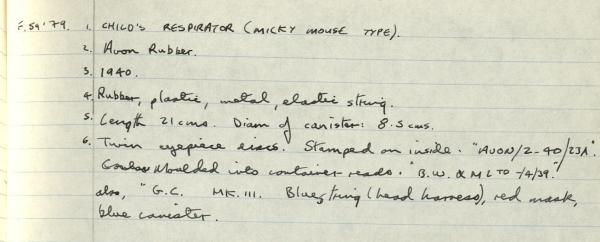 F.59'79. 1. CHILD'S RESPIRATOR (MICKY MOUSE TYPE).
2. Avon Rubber.
3. 1940.
4. Rubber, plastic, metal, elastic string.
5. Length 21 cms. Diam of canister: 8.5 cms.
6. Twin eyepiece discs. Stamped on inside. "AVON/2-40/23A".
Moulded into container reads. "B.W. & M LTD -/4/39."
also, "G.C. MK. III. Blue string (head harness), red mask,
blue canister.